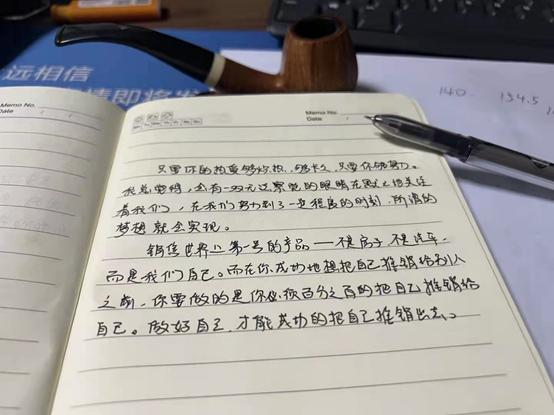 远相信
情即将发
Memo No.
Date
Memo No.
Date
140
134.5
只要你的热爱够炽热、够长久,只要你够努力。
我总觉得,会有一双无比聚能的眼睛在默默地关注
着我们,在我们努力到了一定程度的时刻,所谓的
梦想就会实现。
销售世界上第一号的产品——不是房子,不是汽车,
而是我们自己。而在你成功地想把自己推销给别人
之前,你要做的是你必须百分之百的把自己推销给
自己。做好自己,才能成功的把自己推销出去。